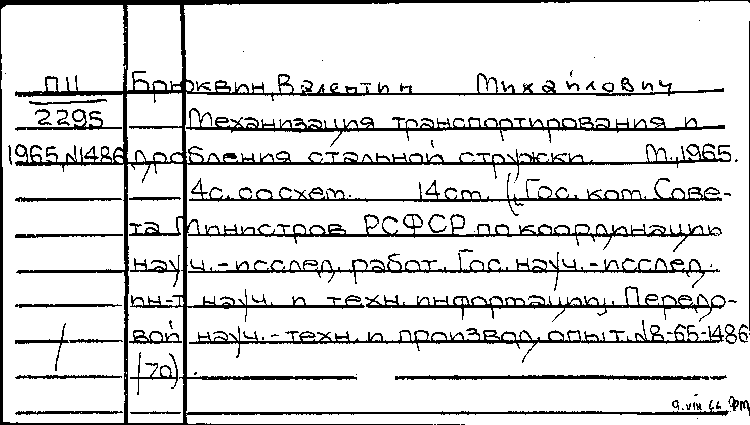 П11 Брюквин, Валентин Михайлович
2295 Механизация транспортирования и
1965, №1486 дробления стальной стружки. М., 1965.
4с. со схем. 14 см. (Гос. ком. Сове-
та Министров РСФСР по координации
науч.-исслед. работ. Гос. науч.-исслед.
ин-т науч. и техн. информации. Передо-
вой науч.-техн. и производ. опыт. №8-65-1486
/70).
9.VIII.66